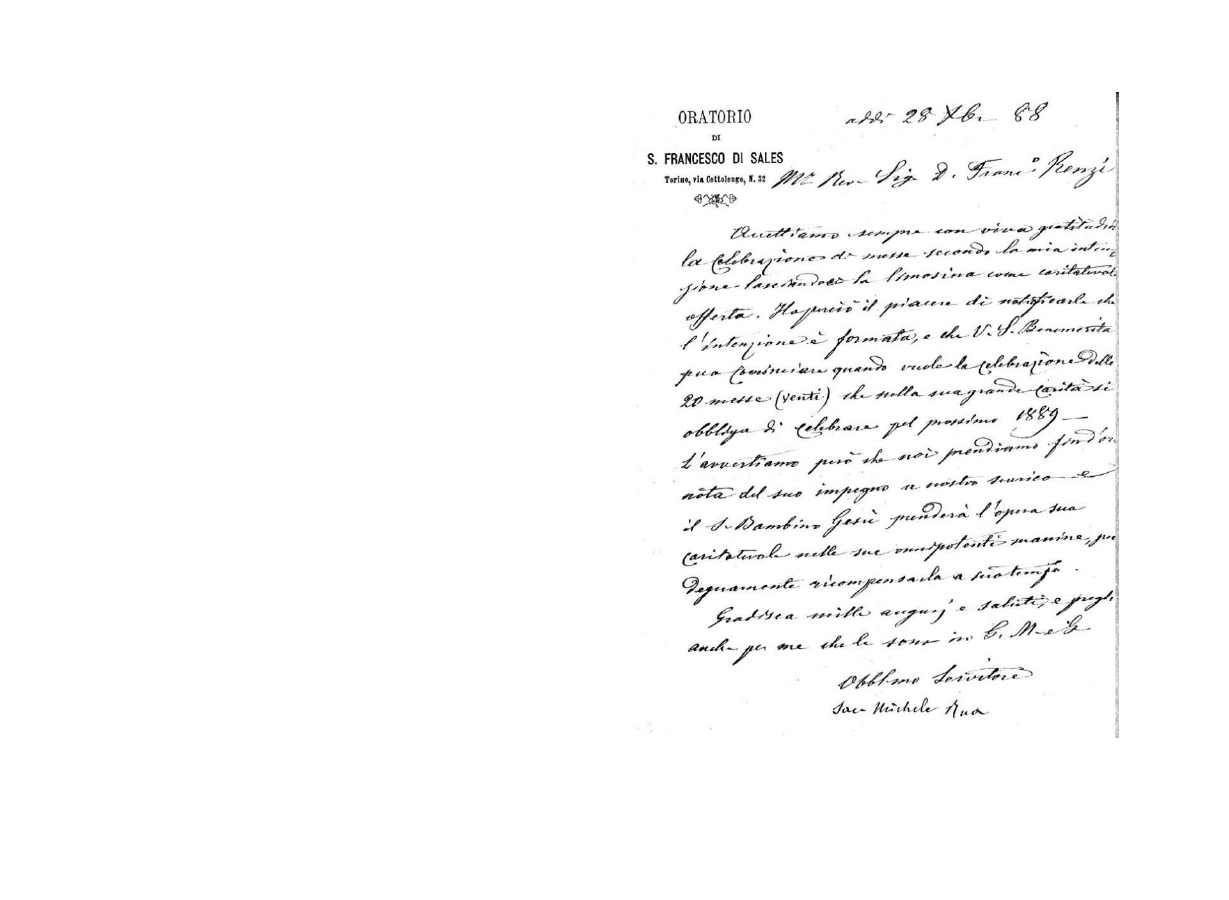 ORATORIO
DI
S. FRANCESCO DI SALES
Torino, via Cottolengo, N. 32
addì 28 Xb. 88
Mto Rev. Sig. D. Franco. Renzi
Accettiamo sempre con viva gratitudin
la celebrazione di messe secondo la mia inten-
zione lasciandoci la limosina come caritatevole
offerta. Ho perciò il piacere di notificarle che
l'intenzione è formata, e che V. S. Benemerita
può cominciare quando vuole la celebrazione delle
20 messe (venti) che nella sua grande carità si
obbliga di celebrare pel prossimo 1889 —
L'avvertiamo però che noi prendiamo fin d'or
nota del suo impegno a nostro scarico e
il S. Bambino Gesù prenderà l'opera sua
caritatevole nelle sue onnipotenti manine, per
degnamente ricompensarla a suo tempo.
Gradisca mille augurj e saluti, e preghi
anche per me che le sono in G. M. e G.
Obblmo Servitore
Sac. Michele Rua